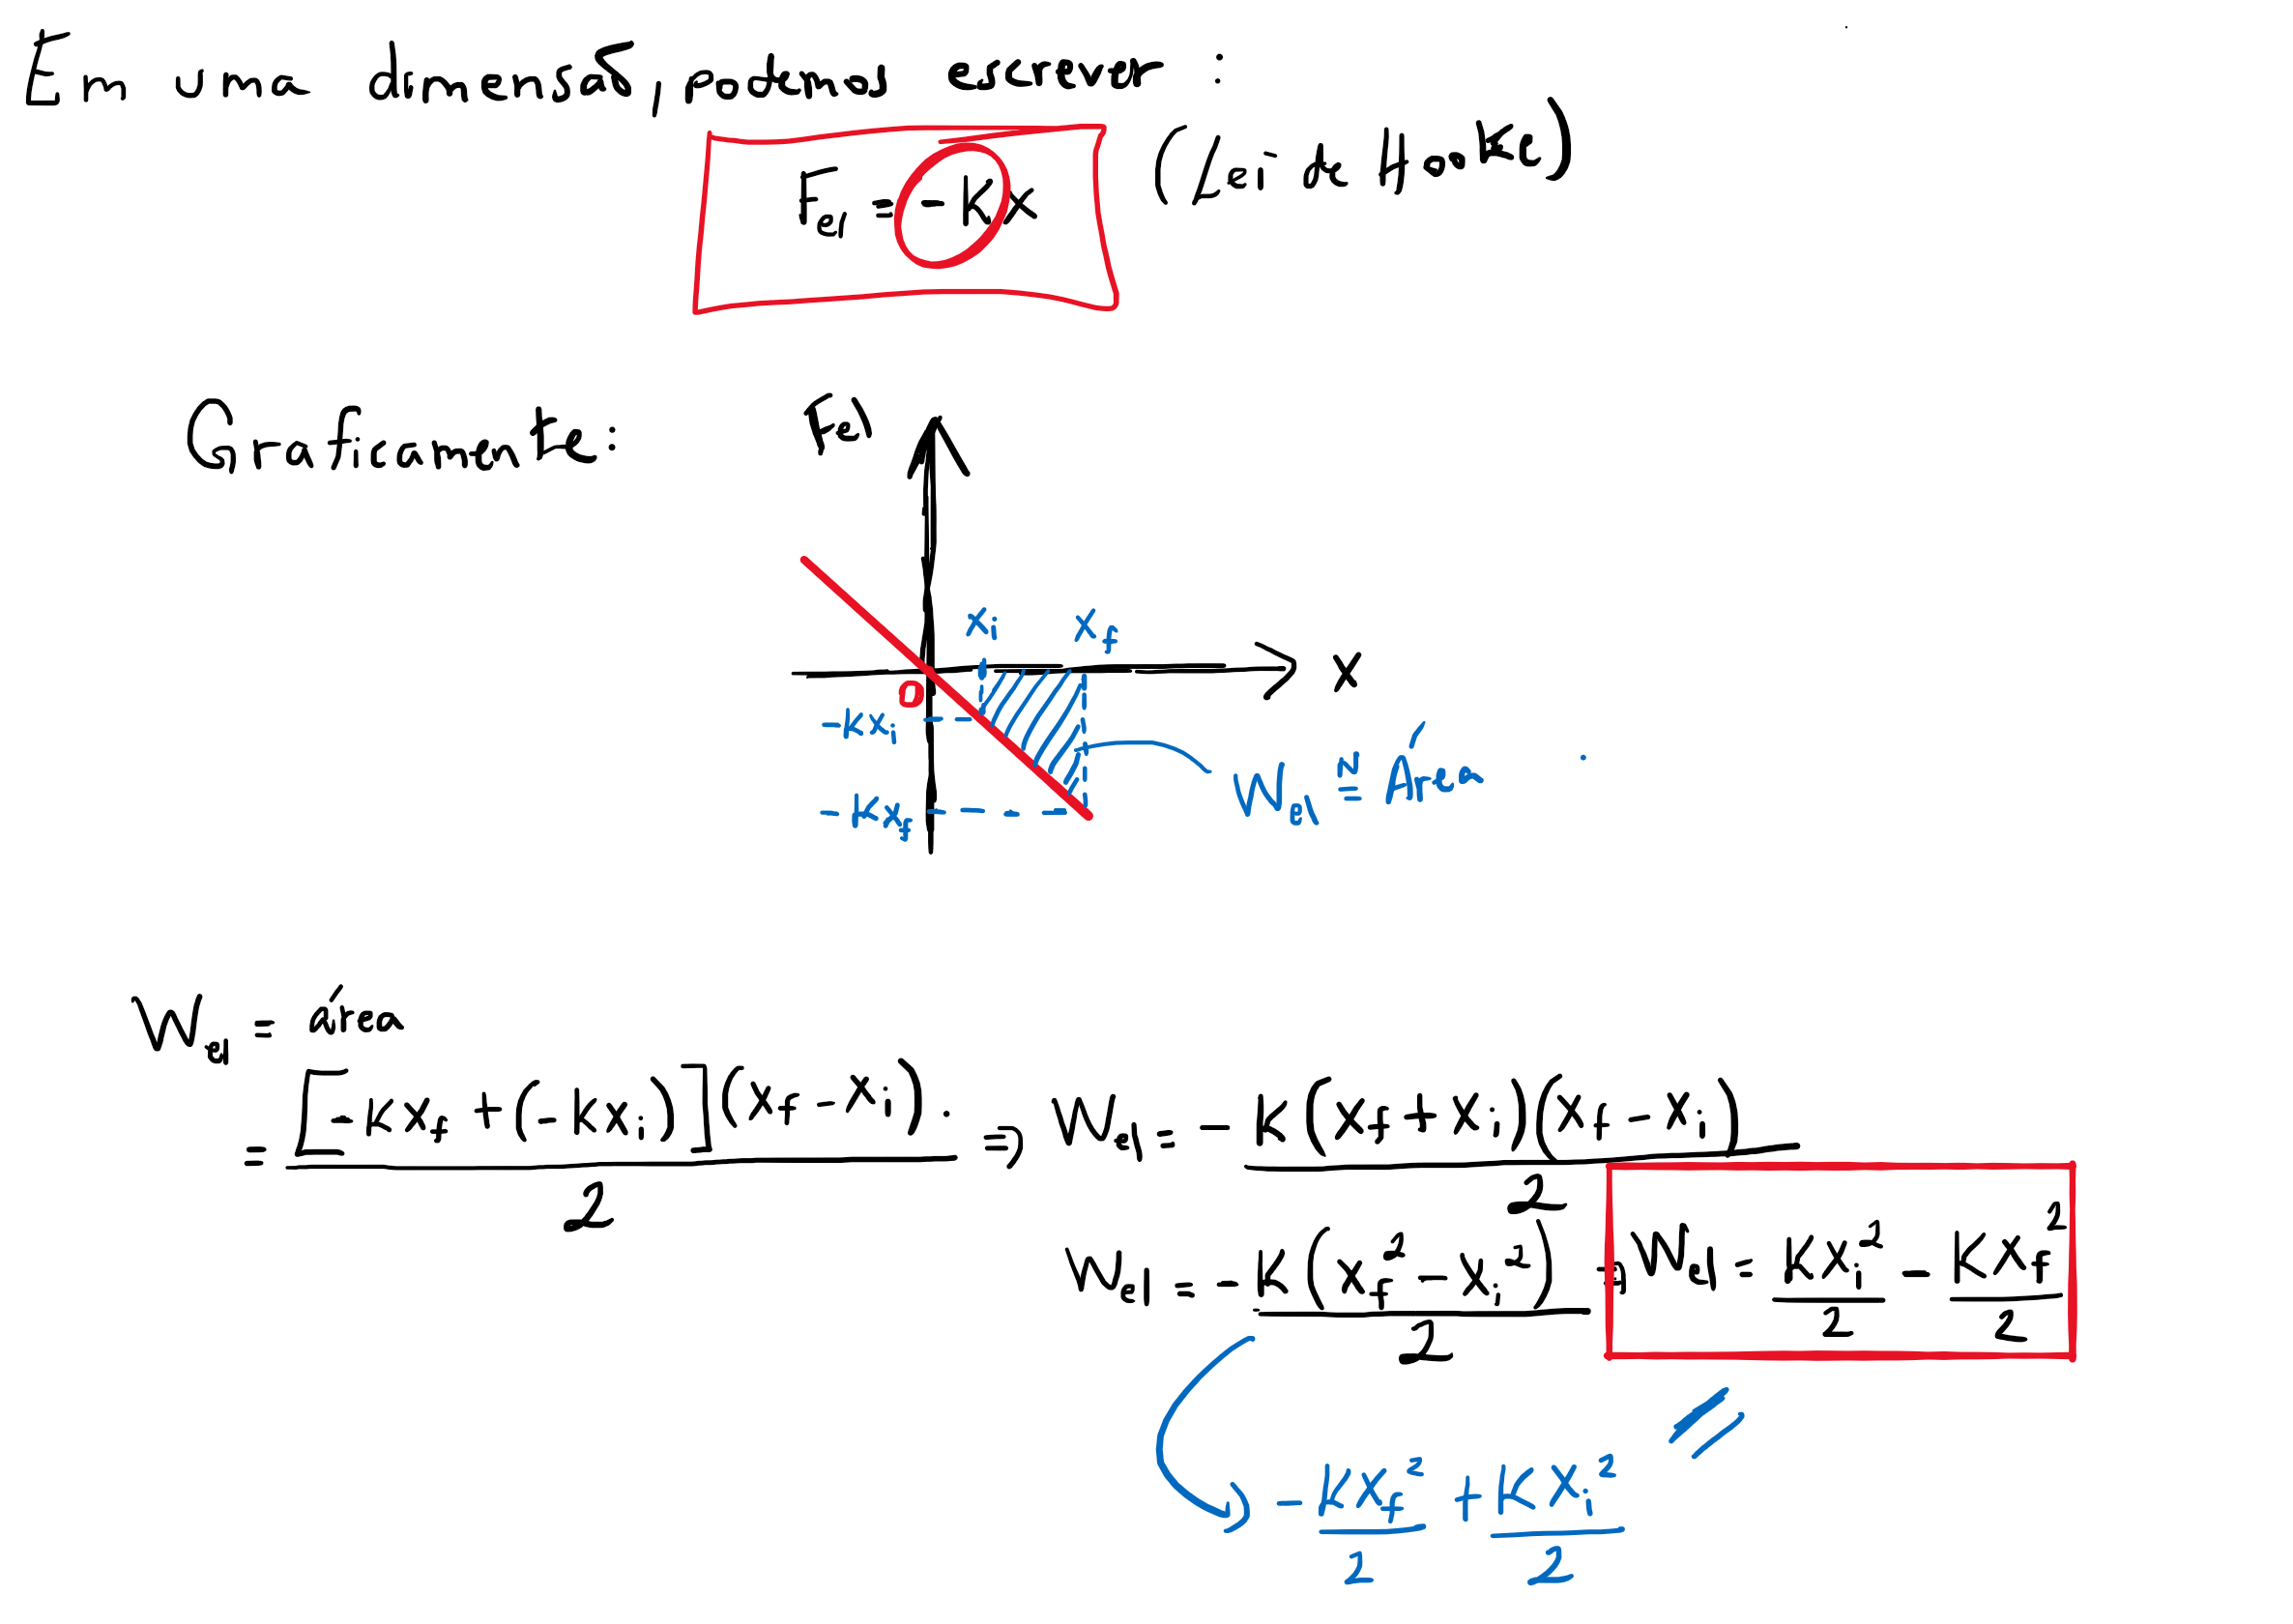 Em uma dimensão, podemos escrever :
F_el = -Kx (Lei de Hooke)
Graficamente:
F_el
x_i x_f
x
0
-kx_i
-kx_f
W_el =^N Área
W_el = área
= [-Kx_f + (-Kx_i)](x_f - x_i) / 2 . ⇒ W_el = - K(x_f + x_i)(x_f - x_i) / 2
W_el = - K(x_f² - x_i²) / 2 ⇒ W_el = Kx_i² / 2 - Kx_f² / 2
- Kx_f² / 2 + Kx_i² / 2